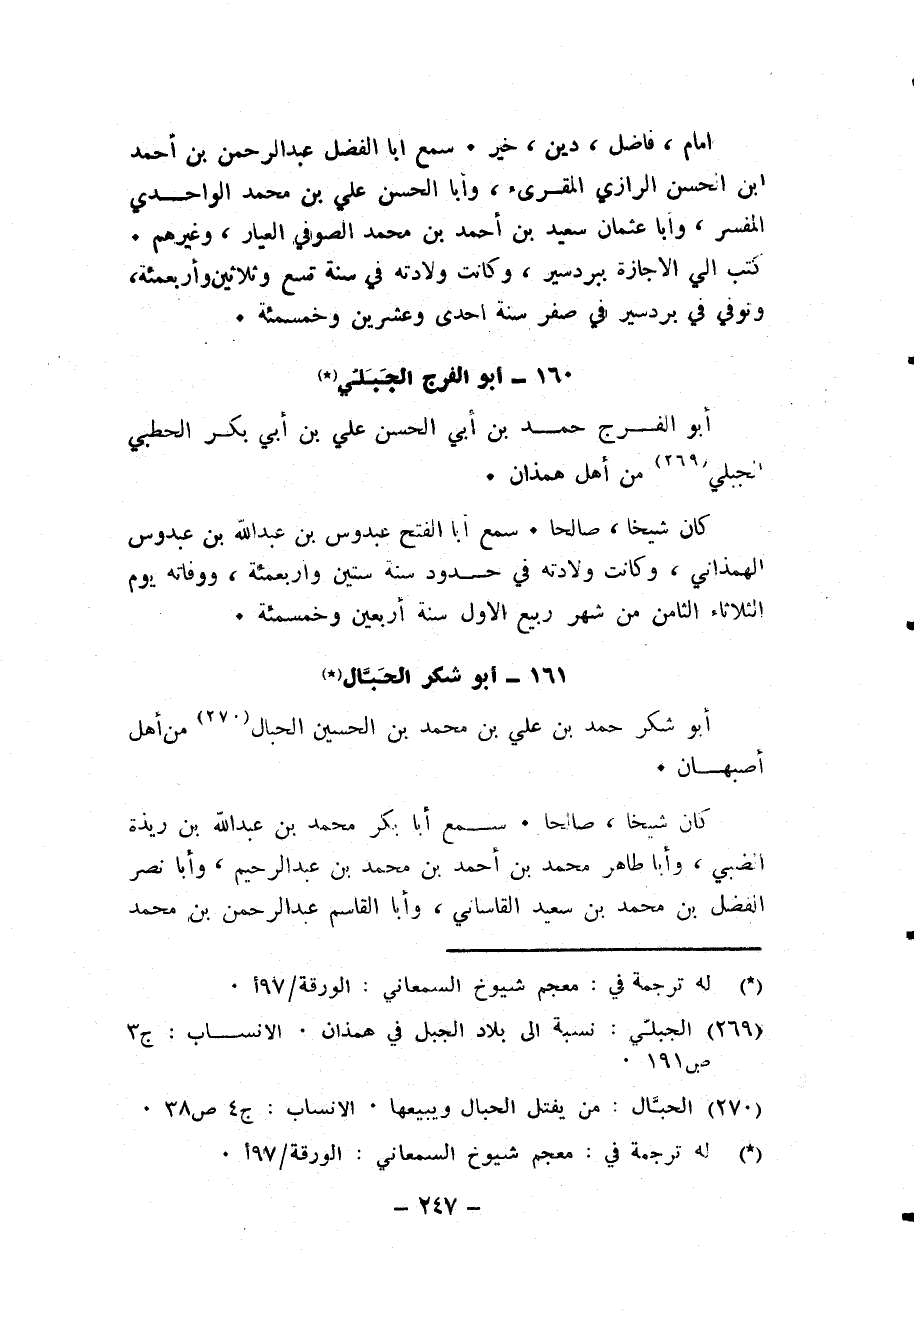 امام ، فاضل ، دين ، خير ٠ سمع ابا الفضل عبدالرحمن بن أحمد
ابن الحسن الرازي المقـرىء ، وأبا الحسن علي بن محمد الواحـــدي
المفسر ، وأبا عثمان سعيد بن أحمد بن محمد الصوافي العيار ، وغيرهم ٠
كتب الي الاجازة ببردسير ، وكانت ولادته في سنة تسع وثلاثين وأربعمئة،
وتوفي في بردسير في صفر سنة احدى وعشرين وخمسمئة ٠
١٦٠ – أبو الفرج الجَبَلي(*)
أبو الفــرج حمــد بن أبي الحسن علي بن أبي بكـر الحطبي
الجبلي(٢٦٩) من أهل همذان ٠
كان شيخا ، صالحا ٠ سمع أبا الفتح عبدوس بن عبدالله بن عبدوس
الهمذاني ، وكانت ولادته في حــدود سنة ستين واربعمئة ، ووفاته يوم
الثلاثاء الثامن من شهر ربيع الاول سنة أربعين وخمسمئة ٠
١٦١ – أبو شكر الحَبَّال(*)
أبو شكر حمد بن علي بن محمد بن الحسين الحبال(٢٧٠) من أهل
أصبهــان ٠
كان شيخا ، صالحا ٠ ســمع أبا بكر محمد بن عبدالله بن ريذة
الضبي ، وأبا طاهر محمد بن أحمد بن محمد بن عبدالرحيم ، وأبا نصر
الفضل بن محمد بن سعيد القاساني ، وأبا القاسم عبدالرحمن بن محمد
(*) له ترجمة في : معجم شيوخ السمعاني : الورقة/٩٧أ ٠
(٢٦٩) الجبلي : نسبة الى بلاد الجبل في همذان ٠ الانســاب : ج٣
ص١٩١ ٠
(٢٧٠) الحبَّال : من يفتل الحبال ويبيعها ٠ الانساب : ج٤ ص٣٨ ٠
(*) له ترجمة في : معجم شيوخ السمعاني : الورقة/٩٧أ ٠
– ٢٤٧ –